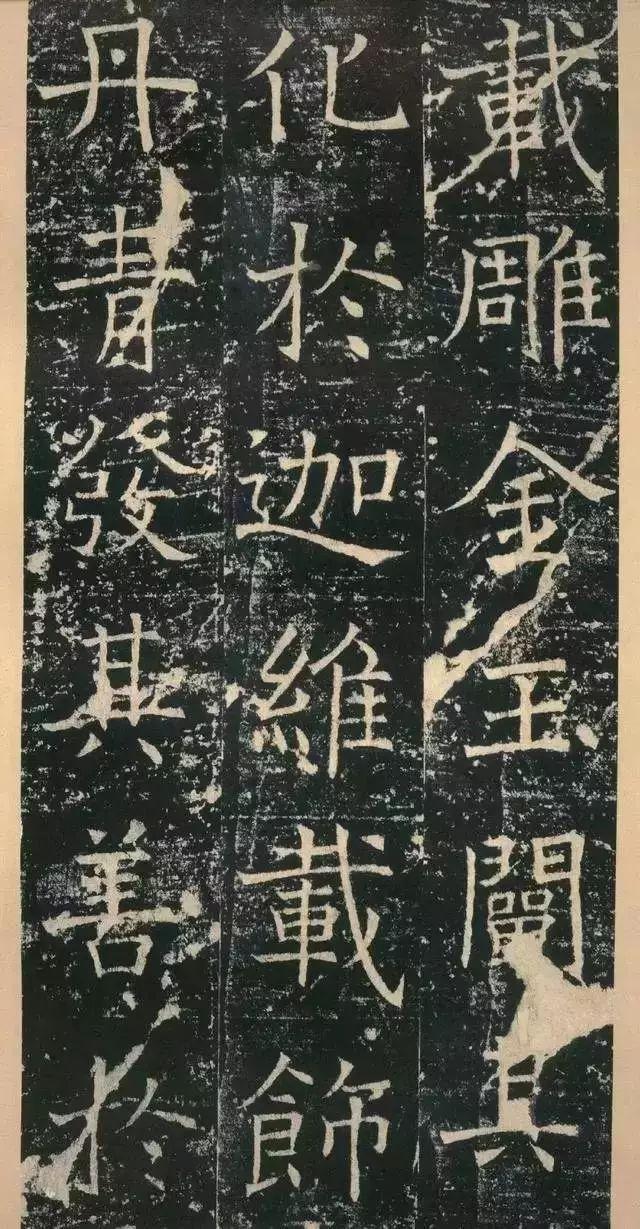 載雕金玉闡其
化於迦維載飾
丹青發其善於